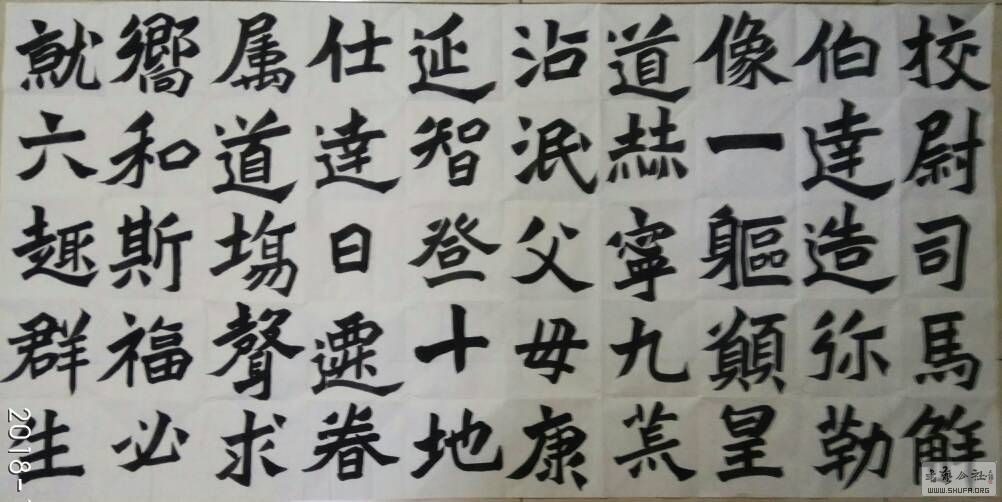 挍尉司馬觧
伯達造弥勒
像一軀顛皇
道赫寧九荒
沾泯父母康
延智登十地
仕達日遷眷
属道塲聲求
嚮和斯福必
就六趣群生
2018-
书艺公社
WWW.SHUFA.ORG